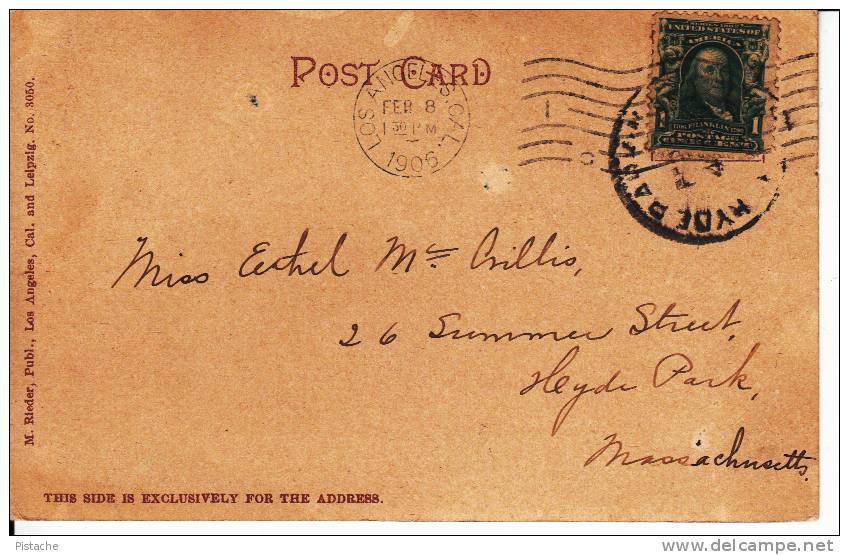 POST CARD
LOS ANGELES, CAL.
FEB 8
1 30 PM
1906
UNITED STATES OF
AMERICA
FRANKLIN
1 POSTAGE 1
HYDE PARK
Miss Ethel Mc Crillis,
26 Summer Street,
Heyde Park,
Massachusetts.
M. Rieder, Publ., Los Angeles, Cal. and Leipzig. No. 3050.
THIS SIDE IS EXCLUSIVELY FOR THE ADDRESS.
Pistache
delcampe.net